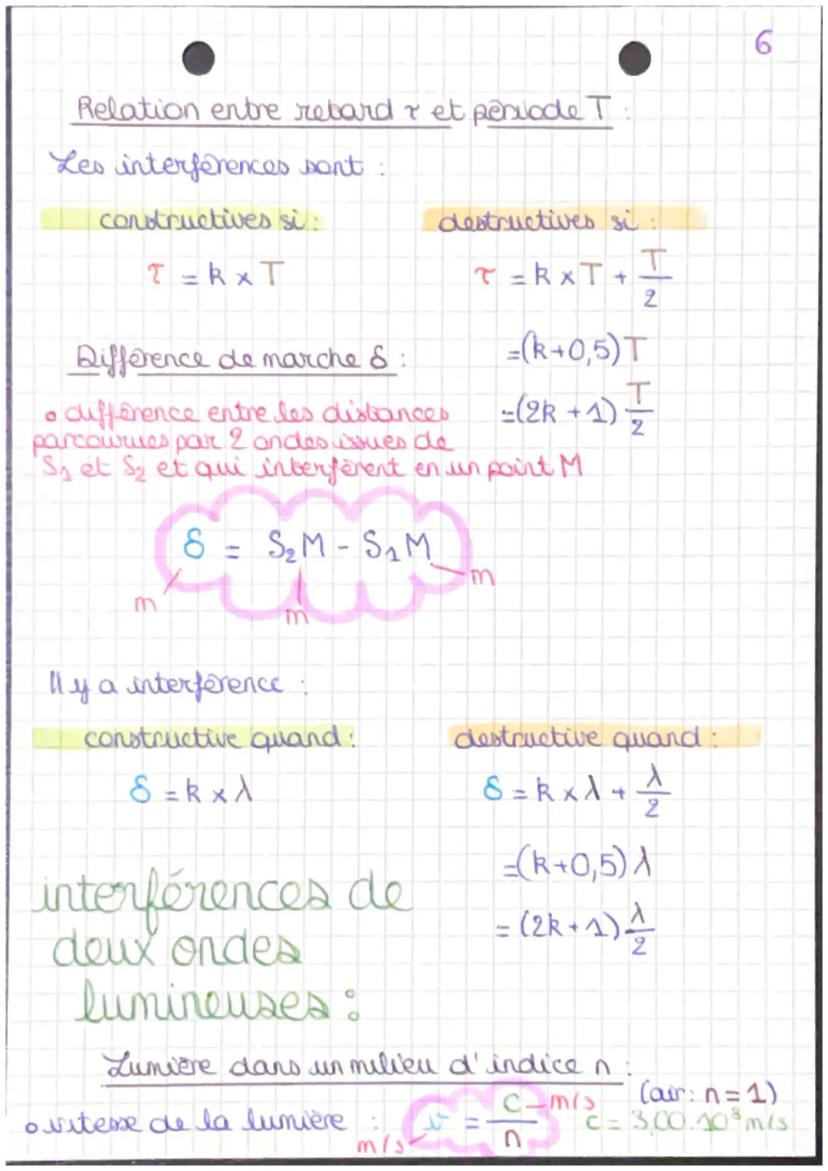 6
Relation entre retard τ et période T :
Les interférences sont :
constructives si :
τ = k × T
destructives si :
τ = k × T + T/2
=(k+0,5)T
=(2k+1) T/2
Différence de marche δ :
• différence entre les distances
parcourues par 2 ondes issues de
S₁ et S₂ et qui interfèrent en un point M
δ = S₂M - S₁M
m
m
m
Il y a interférence :
constructive quand :
δ = k × λ
destructive quand :
δ = k × λ + λ/2
=(k+0,5)λ
= (2k+1) λ/2
interférences de
deux ondes
lumineuses :
Lumière dans un milieu d'indice n :
(air : n = 1)
• vitesse de la lumière : v = c/n
m/s
m/s
c = 3,00.10⁸ m/s